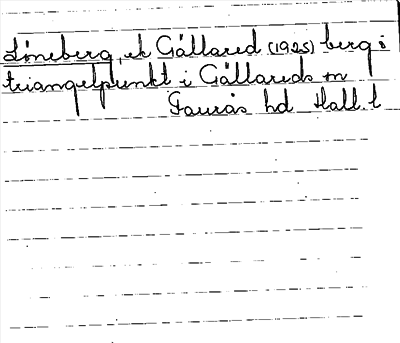 Löneberg, ek Gällared (1925) berg i
triangelpunkt i Gällareds sn
Faurås hd Hall. l